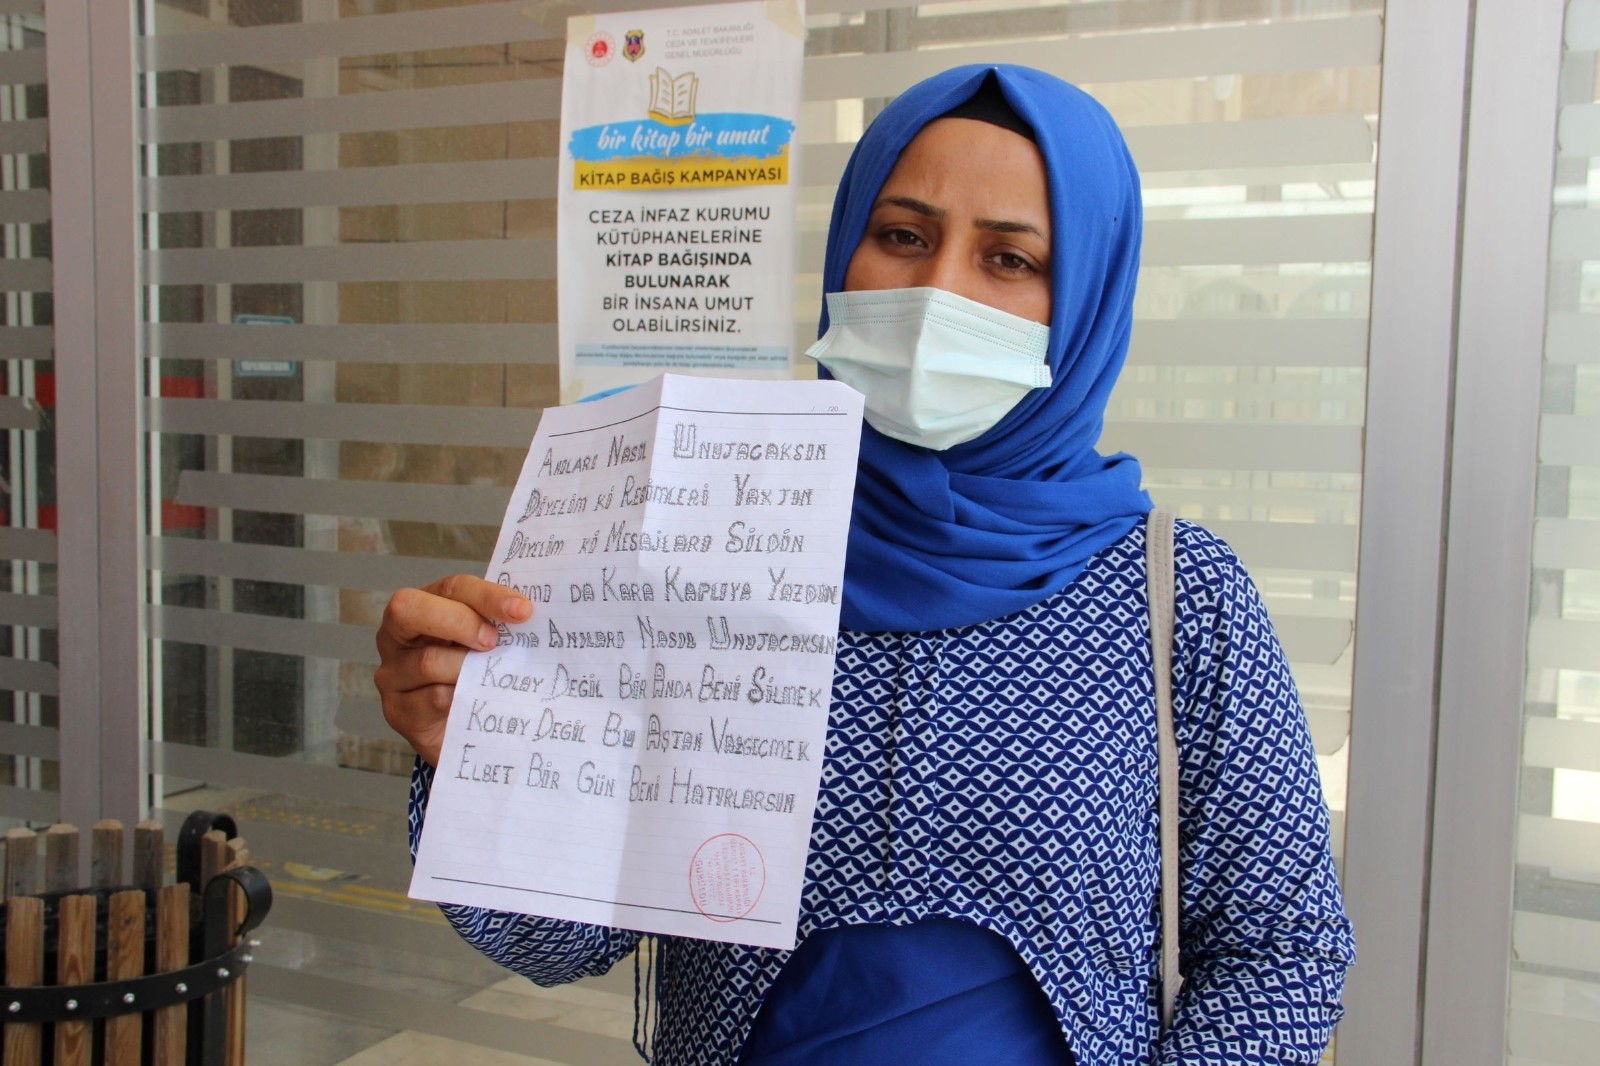 T.C. ADALET BAKANLIĞI
CEZA VE TEVKİFEVLERİ
GENEL MÜDÜRLÜĞÜ
bir kitap bir umut
KİTAP BAĞIŞ KAMPANYASI
CEZA İNFAZ KURUMU
KÜTÜPHANELERİNE
KİTAP BAĞIŞINDA
BULUNARAK
BİR İNSANA UMUT
OLABİLİRSİNİZ.
ANILARI NASIL UNUTACAKSIN
DİYELİM Kİ RESİMLERİ YAKTIN
DİYELİM Kİ MESAJLARI SİLDİN
ADIMI DA KARA KAPLIYA YAZDIN
AMA ANILARI NASIL UNUTACAKSIN
KOLAY DEĞİL BİR ANDA BENİ SİLMEK
KOLAY DEĞİL BU AŞTAN VAZGEÇMEK
ELBET BİR GÜN BENİ HATIRLARSIN
GÖRÜLDÜ